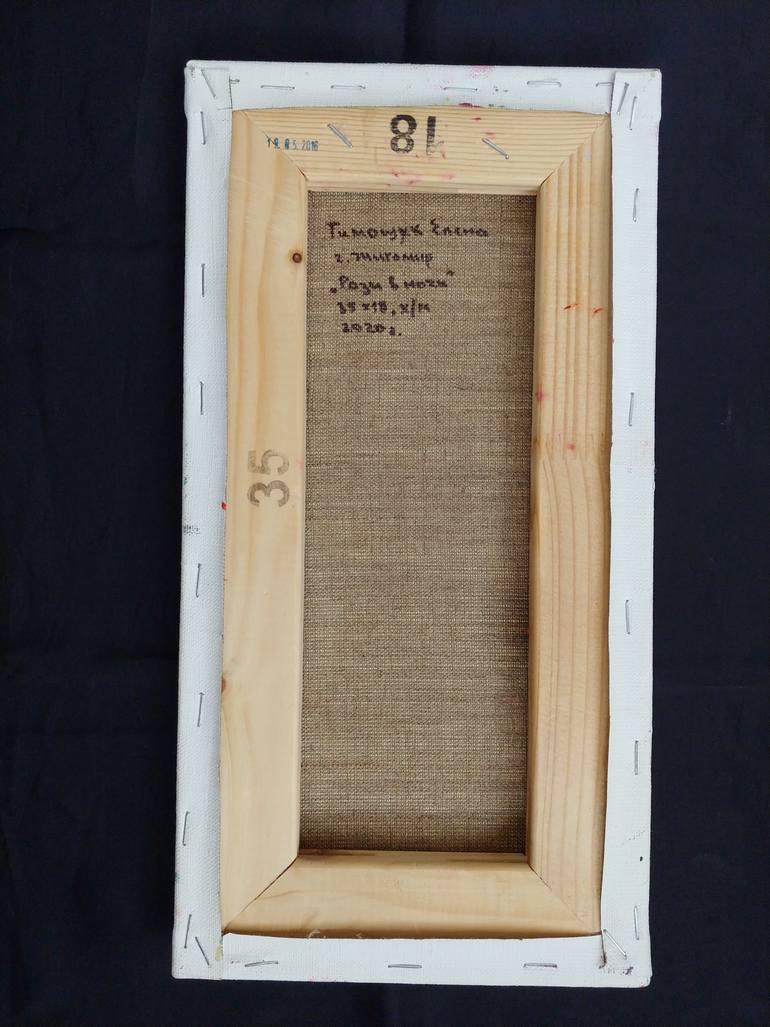 81
19.05.2016
Тимощук Елена
г. Житомир
„Розы в ночи"
35x18, х/м
2020 г.
35